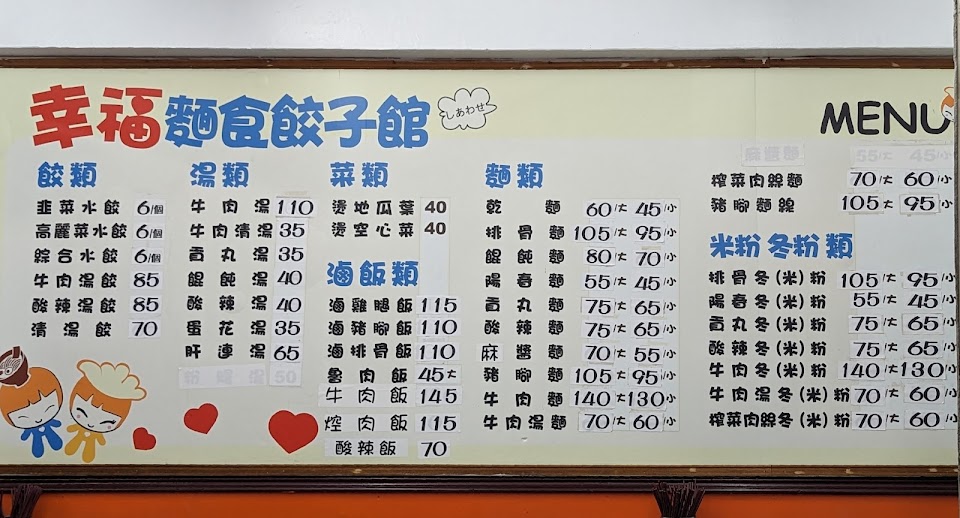 幸福麵食餃子館
しあわせ
MENU
餃類
韭菜水餃 6/個
高麗菜水餃 6/個
綜合水餃 6/個
牛肉湯餃 85
酸辣湯餃 85
清湯餃 70
湯類
牛肉湯 110
牛肉清湯 35
貢丸湯 35
餛飩湯 40
酸辣湯 40
蛋花湯 35
肝連湯 65
50
菜類
燙地瓜葉 40
燙空心菜 40
滷飯類
滷雞腿飯 115
滷豬腳飯 110
滷排骨飯 110
魯肉飯 45大
牛肉飯 145
焢肉飯 115
酸辣飯 70
麵類
乾麵 60/大 45/小
排骨麵 105/大 95/小
餛飩麵 80/大 70/小
陽春麵 55/大 45/小
貢丸麵 75/大 65/小
酸辣麵 75/大 65/小
麻醬麵 70/大 55/小
豬腳麵 105/大 95/小
牛肉麵 140/大 130/小
牛肉湯麵 70/大 60/小
麻醬麵 55/大 45/小
榨菜肉線麵 70/大 60/小
豬腳麵線 105/大 95/小
米粉冬粉類
排骨冬(米)粉 105/大 95/小
陽春冬(米)粉 55/大 45/小
貢丸冬(米)粉 75/大 65/小
酸辣冬(米)粉 75/大 65/小
牛肉冬(米)粉 140/大 130/小
牛肉湯冬(米)粉 70/大 60/小
榨菜肉線冬(米)粉 70/大 60/小